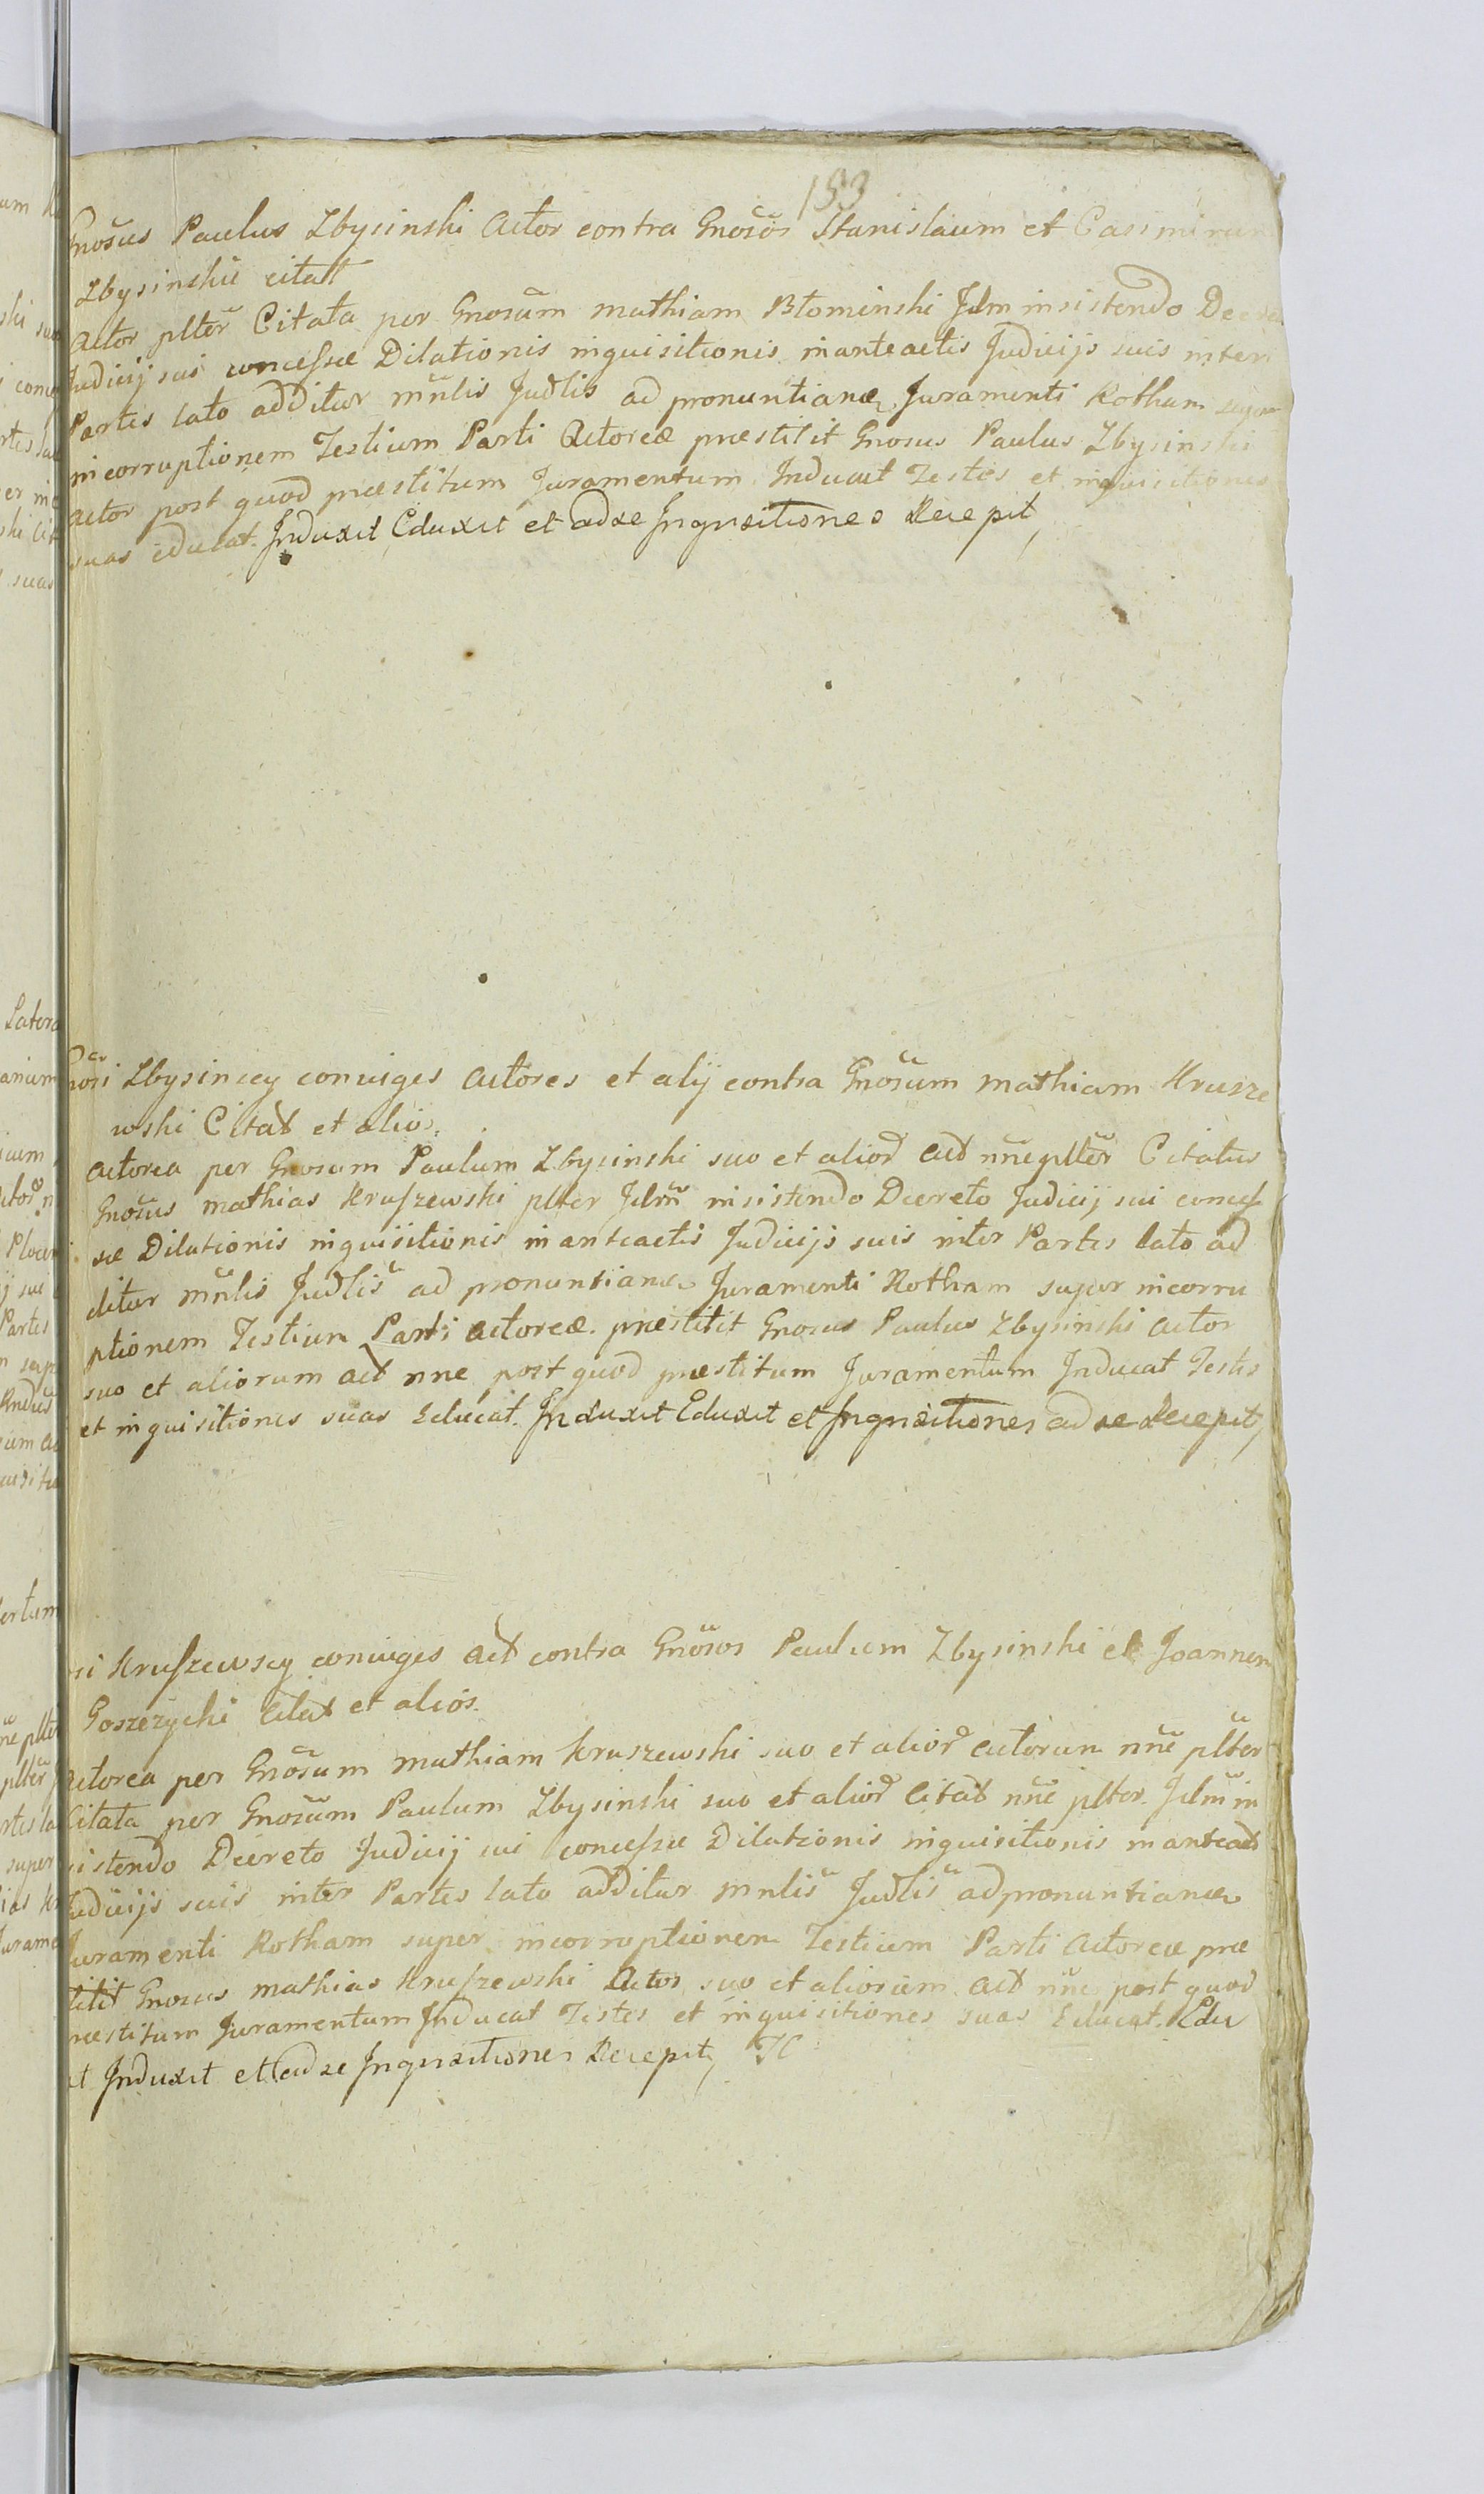 183
Gnosus Paulus Zbysinski Actor contra Gnosos Stanislaum et Casimirum
Zbysinskie citat
Actor plter Citata per Gnosum Mathiam Btominski Jdm insistendo Decre
Judicij sui concessae Dilationis inquisitionis in anteactis Judicijs suis inter
Partes lato additur mnlis Judlis ad pronuntianda Juramenti Rotham super
incorruptionem Testium Parti Actoreae praestitit Gnosus Paulus Zbysinski
Actor post quod praestitum Juramentum Inducat Testes et inquisitiones
suas educat. Induxit Eduxit et ad se Inquisitiones Recepit
nosi Zbysinscy coniuges Actores et alij contra Gnosum Mathiam Krusze
wski Citat et alios.
Actorea per Gnosum Paulum Zbysinski suo et alior act nne plter Citatus
Gnosus Mathias Kruszewski plter Jdm insistendo Decreto Judicij sui conces
sae Dilationis inquisitionis in anteactis Judicijs suis inter Partes lato ad
ditur mnlis Judlis ad pronuntianda Juramenti Rotham super incorru
ptionem Testium Parti Actoreae praestitit Gnosus Paulus Zbysinski Actor
suo et aliorum act nne post quod praestitum Juramentum Inducat Testes
et inquisitiones suas Educat. Induxit Eduxit et Inquisitiones ad se Recepit
si Kruszewscy coniuges act contra Gnosos Paulum Zbysinski et Joannem
Goszczycki Citat et alios.
Actorea per Gnosum Mathiam Kruszewski suo et alior actorum nne plter
Citata per Gnosum Paulum Zbysinski suo et alior Citat nne plter Jdm in
sistendo Decreto Judicij sui concessae Dilationis inquisitionis in anteact
Judicijs suis inter Partes lato additur mnlis Judlis ad pronuntianda
Juramenti Rotham super incorruptionem Testium Parti Actoreae prae
titit Gnosus Mathias Kruszewski Actor suo et aliorum act nne post quod
raestitum Juramentum Inducat Testes et inquisitiones suas Educat. Edu
it Induxit et ad se Inquisitiones Recepit